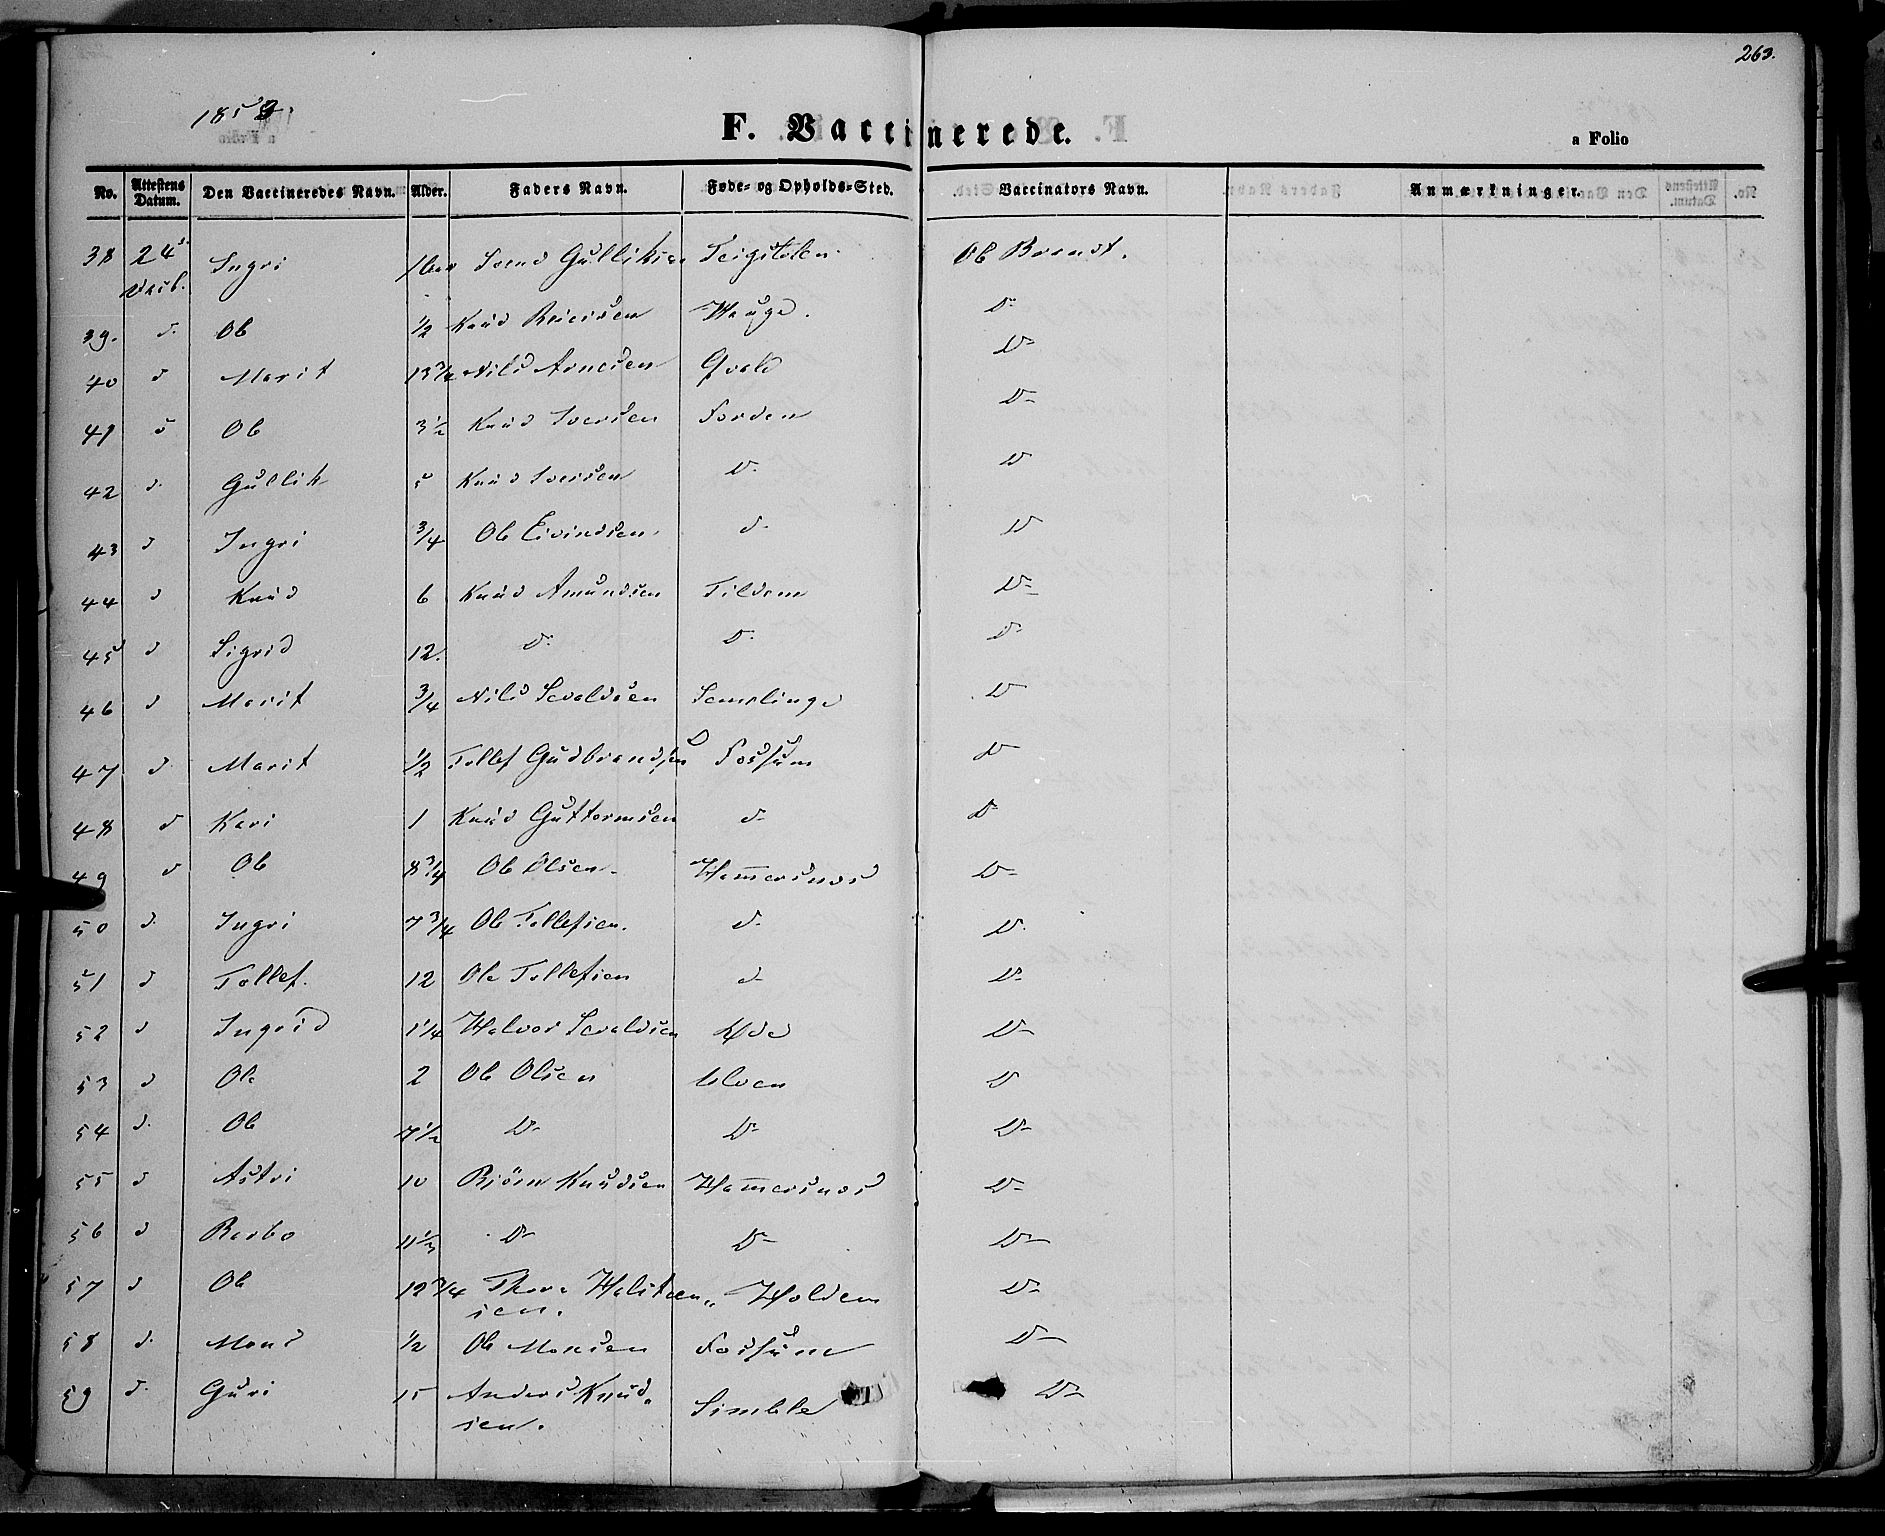 263.
1853.
F. Vaccinerede.
a Folio
No. Attestens Datum. Den Vaccineredes Navn. Alder. Faders Navn. Føde- og Opholds-Sted. Vaccinators Navn. Anmærkninger.
38 24 Ingri Svend Gulliksen Ole Brandt.
39. d. Ole 1/2 Knud Hauge. D-
40 d Marit 13 3/4 Nils Arnesen Qvale D-
41 d Ole 3 1/2 Knud Iversen Forden D-
42 d. Gullik 5 Knud Iversen D. D
43 d Ingri 3/4 Ole Eivindsen d- D
44 d Knud 6 Knud Amundsen Tildem D-
45 d Sigrid 12. D. D. D-
46 d Marit 3/4 Nils Sevaldsen Semelinge D
47 d. Marit 1/2 Tollef Gudbrandsen Fossum D-
48 d Kari 1 Knud Guttormsen d- D
49 d Ole 8 3/4 Ole Olsen. Hammersnes D-
50 d. Ingri 7 3/4 Ole Tollefsen. d. D.
51 d Tollef. 12 Ole Tollefsen d- D-
52 d Ingrid 1 1/4 Halvor Sevaldsen D-
53 d Ole 2 Ole Olsen Ulven D
54 d. Ole 7 1/2 D- D- D-
55 d Astri 10 Bjørn Knudsen Hammersnes D-
56 d Barbo 11 1/3 D- D- D-
57 d Ole 12 3/4 Thore Halsteen„ Holdem D-
sen.
58 d. Mons 1/2 Ole Monsen Fossum D-
59 d. Guri 15 Anders Knud„ Simble D-
sen.